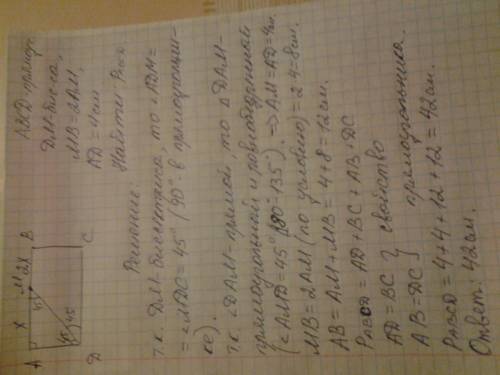 ABCD-прямоуг.
DM-биссек.
MB=2AM,
AD=4см
Найти: Pавсд
A X M 2X B
45
45 45
D C
Решение:
т.к. DM-биссектриса, то ∠ADM=
=∠MDC=45° (90° в прямоугольни-
ке).
т.к. ∠DAM-прямой, то △DAM-
прямоугольный и равнобедренный
(∠AMD=45° (180°-135°) ⇒ AM=AD=4см.
MB=2AM (по условию)=2·4=8см.
AB=AM+MB=4+8=12см.
PABCD=AD+BC+AB+DC
AD=BC } свойство
AB=DC } прямоугольника.
PABCD=4+4+12+12=42см.
Ответ: 42см.